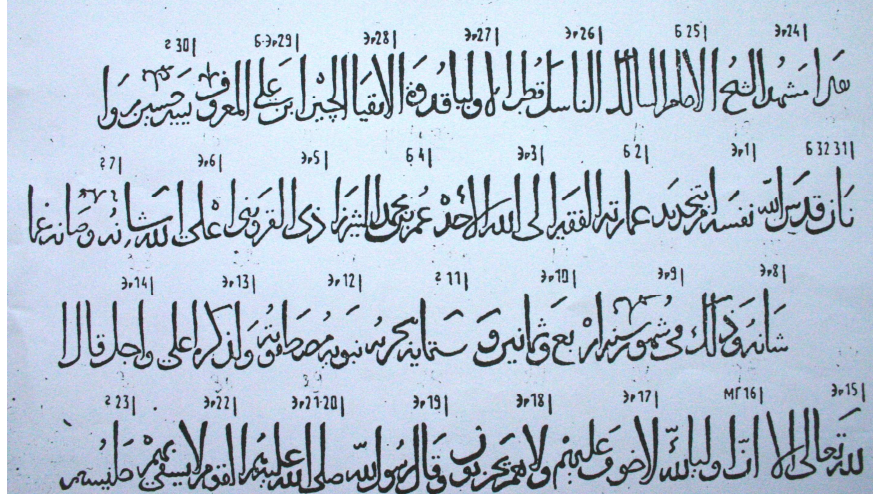 г 30| Б·Эр29| Эр28| Эр27| Эр26| Б 25| Эр24|
هذا مشهد الشيخ الامام السالك الناسك قطب الاوليا قدوة الاتقيا الحسين ابن علي المعروف ببير حسين روا
г 7| Эр6| Эр5| Б 4| Эр3| Б 2| Эр1| Б 32 31|
نان قدس الله نفسه امر بتجديد عمارته الفقير الى الله الاحد عمر بن محمد الشيرزاذي القزويني اعلى الله شانه وصانه عما
Эр14| Эр13| Эр12| г 11| Эр10| Эр9| Эр8|
شانه وذلك في شهور سنة اربع وثمانين و ستماية هجرية نبوية مصطفوية ولذكره اعلى واجل قال ا
г 23| Эр22| Эр21-20| Эр19| Эр18| Эр17| МГ16| Эр15|
لله تعالى الا ان اوليا الله لا خوف عليهم ولا هم يحزنون وقال رسول الله صلى الله عليه هم القوم لا يشقى بهم جليسهم